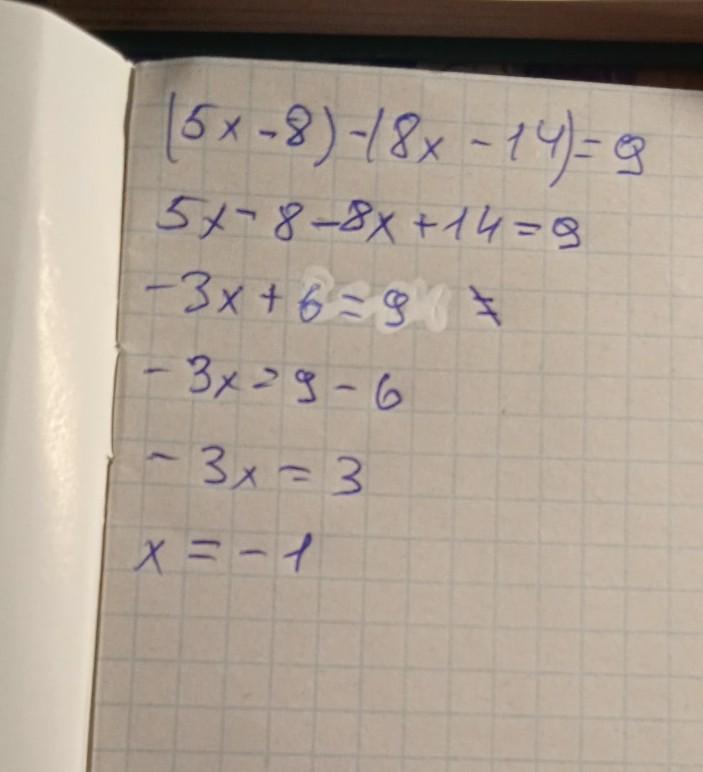 (5x-8)-(8x-14)=9
5x-8-8x+14=9
-3x+6=9
-3x=9-6
-3x=3
x=-1